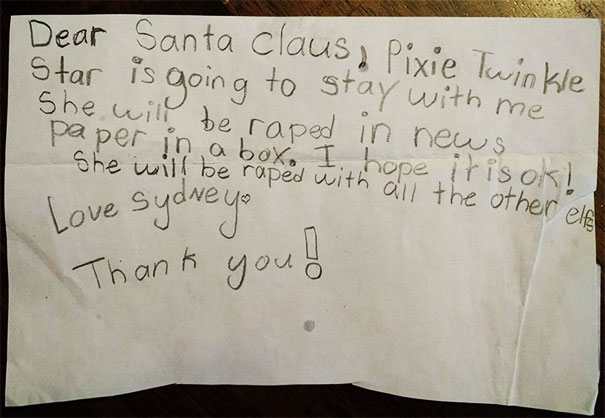 Dear Santa Claus, Pixie Twinkle
Star is going to stay with me
She will be raped in news
paper in a box. I hope it is ok!
She will be raped with all the other elfs
Love Sydney.
Thank you!